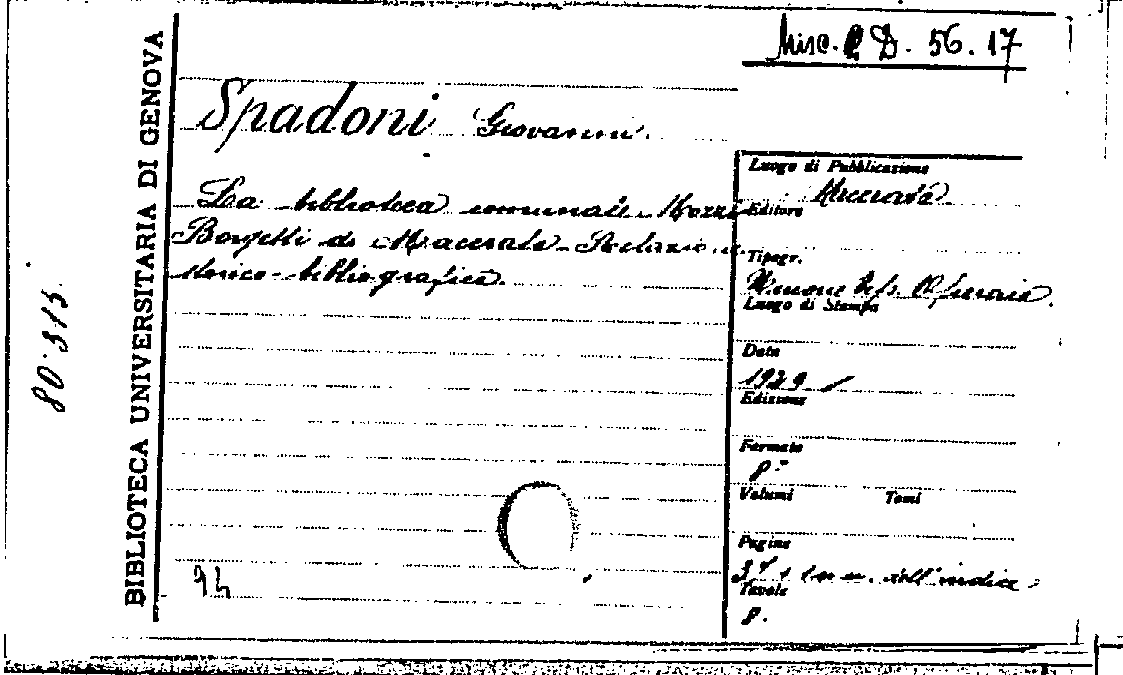 Misc. D. 56. 17
BIBLIOTECA UNIVERSITARIA DI GENOVA
80.313
Spadoni Giovanni.
La biblioteca comunale Mozzi
Borgetti di Macerata - Relazione
storico-bibliografica.
Luogo di Pubblicazione
Macerata
Editore
Tipogr.
Unione Tip. Operaia.
Luogo di Stampa
Data
1929
Edizione
Formato
8°
Volumi Tomi
Pagine
n. dell'indice
Tavole
8.